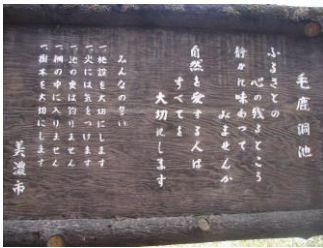 毛鹿洞池
ふるさとの
心の残るところ
静かに味わって
みませんか
自然を愛する人は
すべてを
大切にします
みんなの誓い
一、施設を大切にします
一、火には気をつけます
一、池の魚は釣りません
一、柵の中に入りません
一、樹木を大切にします
美濃市